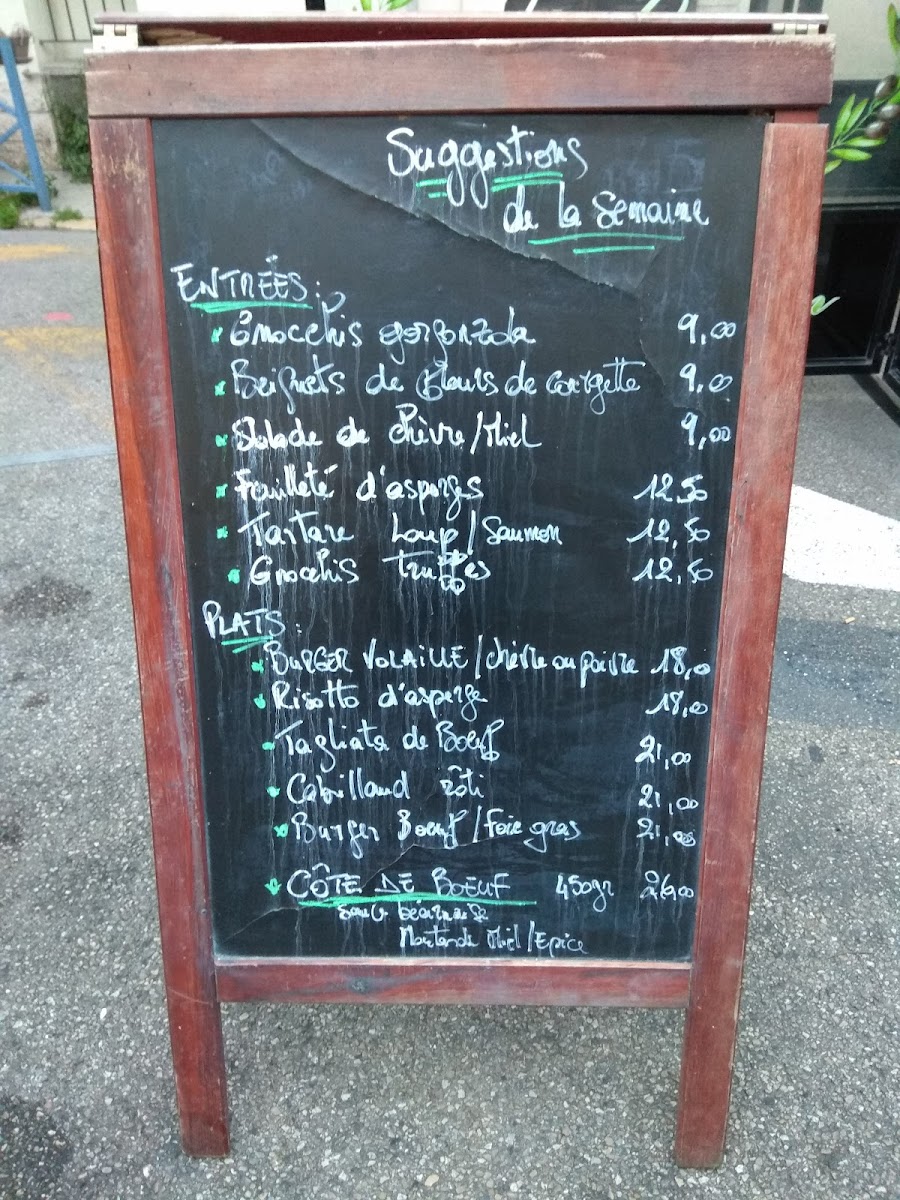 Suggestions
de la Semaine
ENTRÉES :
Gnocchis gorgonzola 9,00
Beignets de fleurs de courgette 9,00
Salade de chèvre/Miel 9,00
Feuilleté d'asperges 12,50
Tartare Loup/Saumon 12,50
Gnocchis Truffes 12,50
PLATS :
BURGER VOLAILLE/chèvre ou poivre 18,00
Risotto d'asperge 18,00
Tagliata de Boeuf 21,00
Cabillaud rôti 21,00
Burger Boeuf/Foie gras 21,00
CÔTE DE BOEUF 450gr 26,00
Sauce béarnaise
Moutarde Miel/Epice